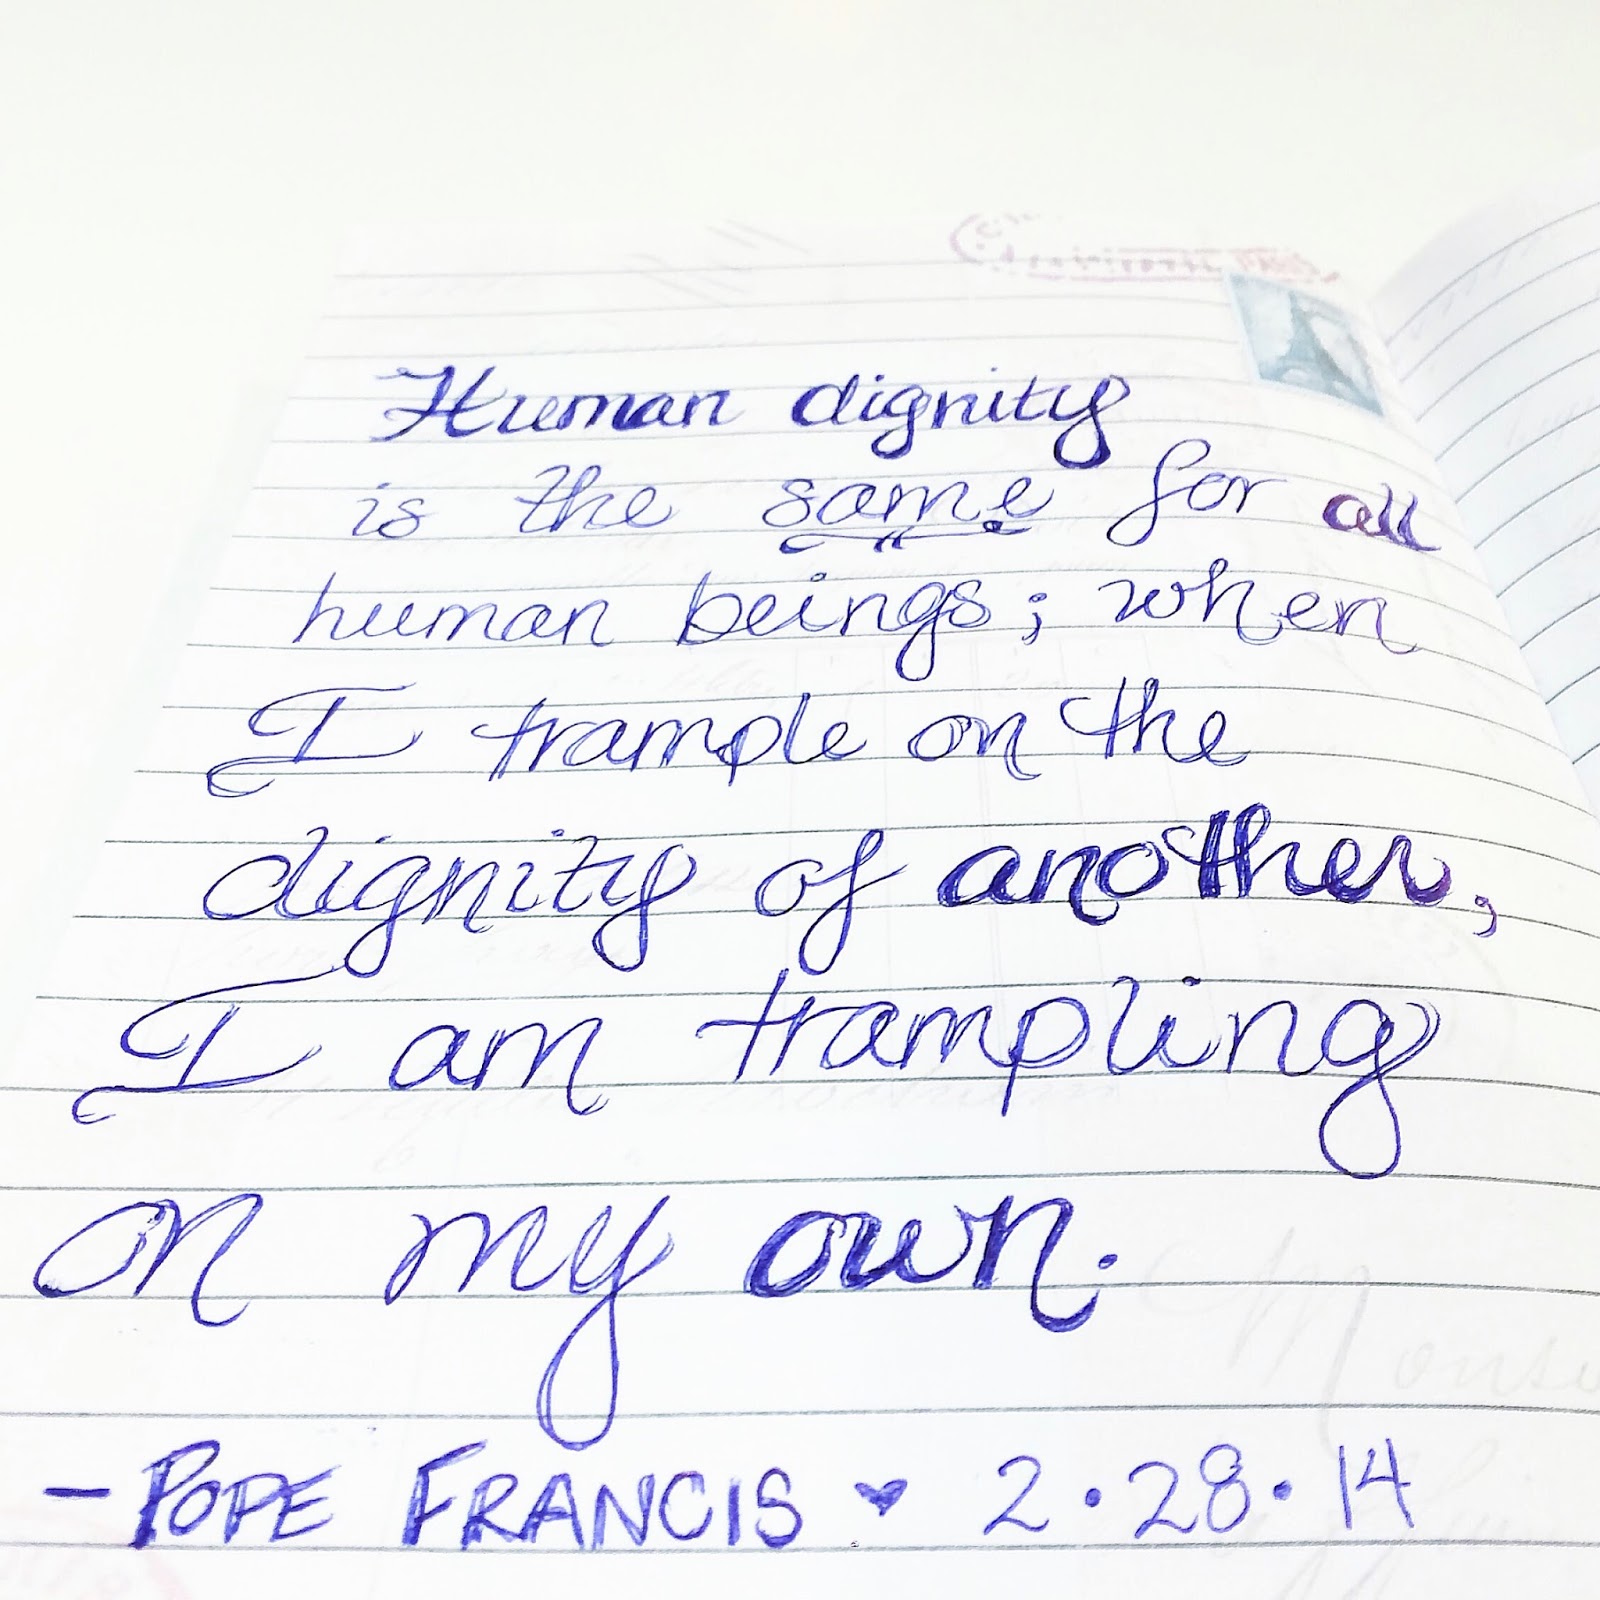 Human dignity
is the same for all
human beings; when
I trample on the
dignity of another,
I am trampling
on my own.
- POPE FRANCIS ♥ 2.28.14